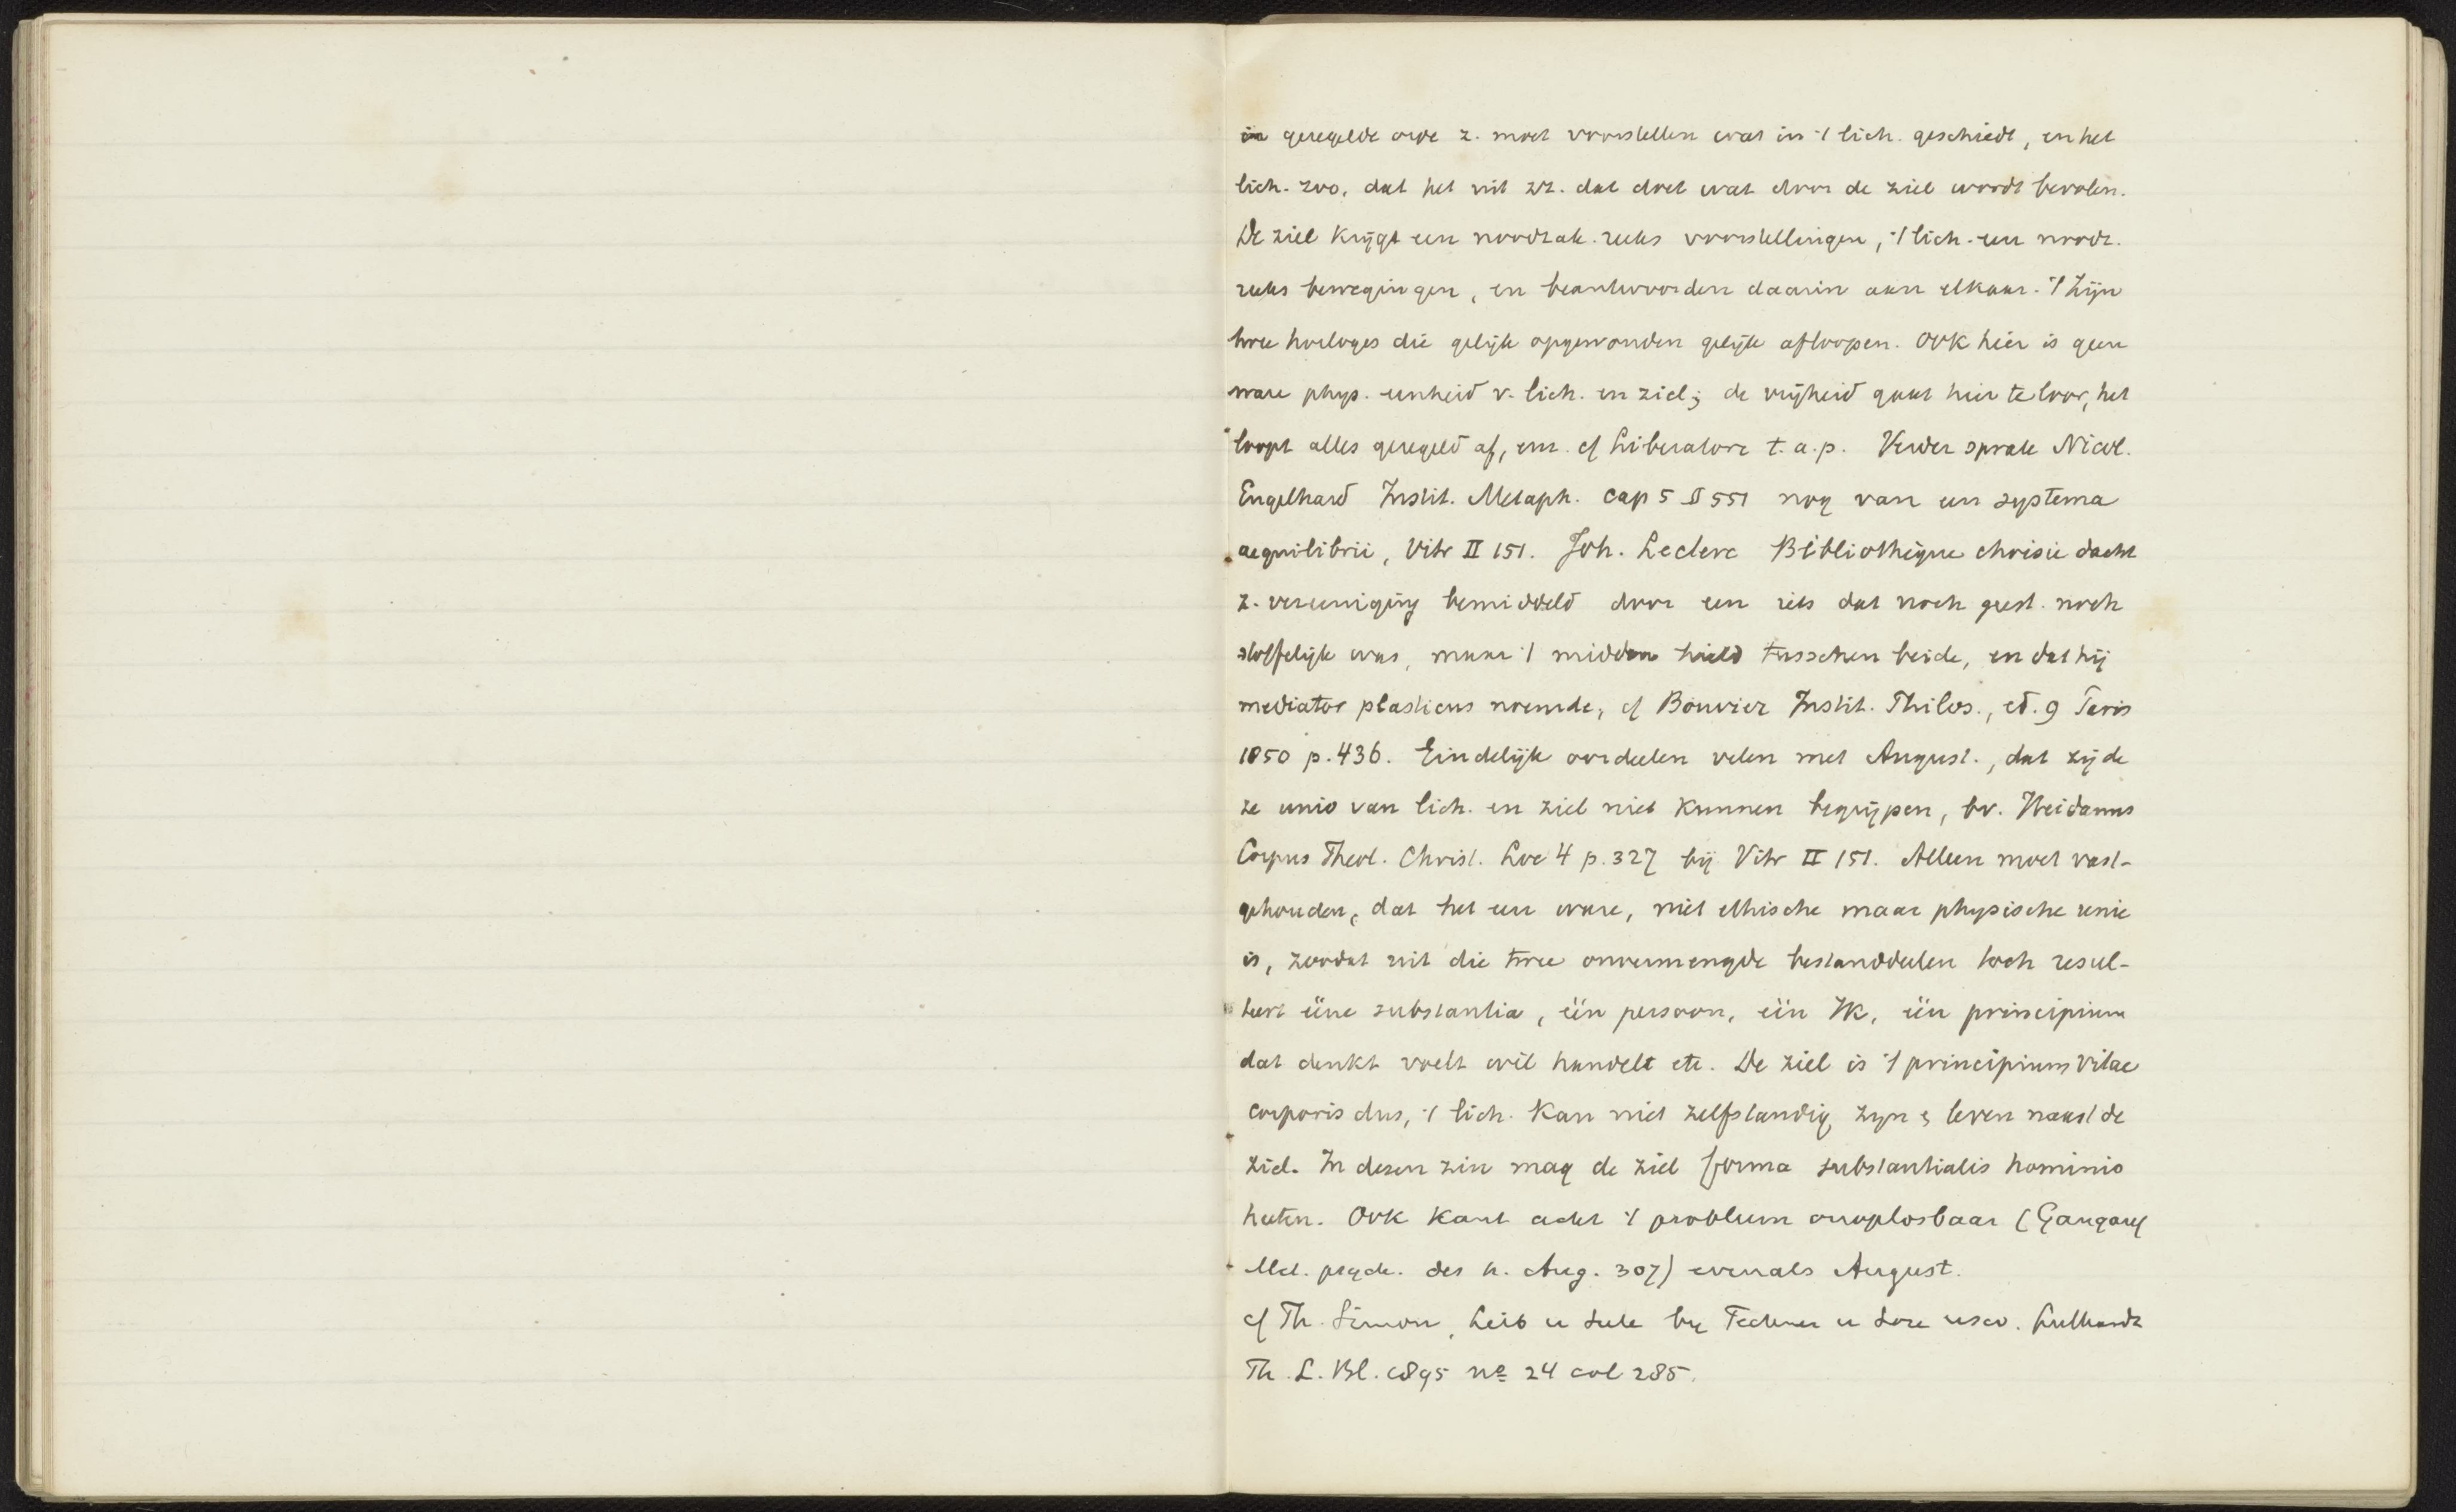 in geregelde orde z. moet voorstellen wat in 't lich. geschiedt, en het
lich. zoo, dat het uit zz. dat doet wat door de ziel wordt bevolen.
De ziel krijgt een noodzak. reeks voorstellingen, 't lich. een noodz.
reeks bewegingen, en beantwoorden daarin aan elkaar. 't Zijn
twee horloges die gelijk opgewonden gelijk afloopen. Ook hier is geen
ware phys. eenheid v. lich. en ziel; de vrijheid gaat hier te loor, het
loopt alles geregeld af, enz. cf Liberatore t.a.p. Verder sprak Nicol.
Engelhard Instit. Metaph. cap 5 § 551 nog van een systema
aequilibrii, Vitr II 151. Joh. Leclerc Bibliothèque choisie dacht
z. vereeniging bemiddeld door een iets dat noch geest. noch
stoffelijk was, maar 't midden hield tusschen beide, en dat hij
mediator plasticus noemde, cf Bouvier Instit. Philos., ed. 9 Paris
1850 p. 436. Eindelijk oordeelen velen met August., dat zij de
ze unio van lich. en ziel niet kunnen begrijpen, bv. Heidanus
Corpus Theol. Christ. Loc 4 p. 327 bij Vitr II 151. Alleen moet vast-
gehouden, dat het een ware, niet ethische maar physische unie
is, zoodat uit die twee onvermengde bestanddeelen toch resul-
teert ééne substantia, één persoon, één Ik, één principium
dat denkt voelt wil handelt etc. De ziel is 't principium vitae
corporis dus, 't lich. kan niet zelfstandig zijn & leven naast de
ziel. In dezen zin mag de ziel forma substantialis hominis
heeten. Ook Kant acht 't probleem onoplosbaar (Gangauf
Met. psych. des h. Aug. 307) evenals August.
cf Th. Simon, Leib u Seele bij Fechner u Lotze usw. Luthardt
Th. L. Bl. 1895 no 24 col 285.